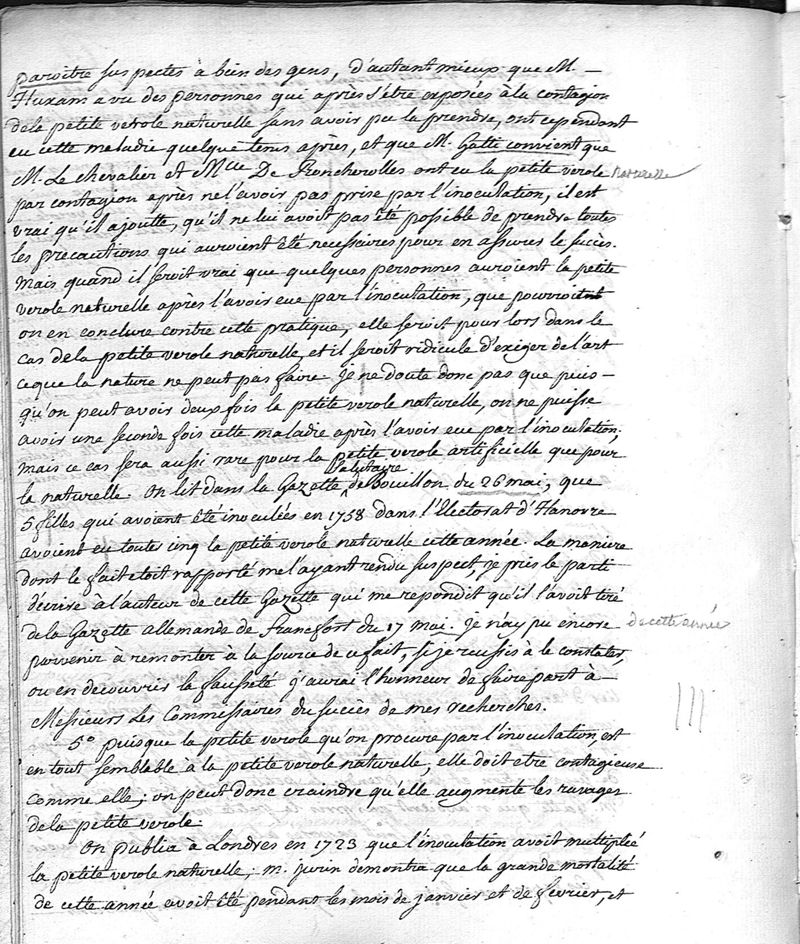 paroitre suspectes à bien des gens, d'autant mieux que M. –
Huxam a vu des personnes qui après s'être exposées à la contagion
de la petite verole naturelle sans avoir pu la prendre, ont cependant
eu cette maladie quelque tems après, et que M. Gatti convient que
M. Le Chevalier et Mlle De Roncherolles ont eu la petite verole naturelle
par contagion après ne l'avoir pas prise par l'inoculation, il est
vrai qu'il ajoutte, qu'il ne lui avoit pas été possible de prendre toutes
les precautions qui auroient été necessaires pour en assurer le succès.
Mais quand il seroit vrai que quelques personnes auroient la petite
verole naturelle après l'avoir eue par l'inoculation, que pourroit
on en conclure contre cette pratique, elle seroit pour lors dans le
cas de la petite verole naturelle, et il seroit ridicule d'exiger de l'art
ce que la nature ne peut pas faire. Je ne doute donc pas que puis –
qu'on peut avoir deux fois la petite verole naturelle, on ne puisse
avoir une seconde fois cette maladie après l'avoir eue par l'inoculation;
mais ce cas sera aussi rare pour la petite verole artificielle que pour
salutaire
la naturelle. On lit dans la Gazette de Bouillon du 26 mai, que
5 filles qui avoient été inoculées en 1758 dans l'Electorat d'Hanovre
avoient eu toutes cinq la petite verole naturelle cette année. La maniere
dont le fait etoit rapporté me l'ayant rendu suspect, je pris le parti
d'écrire à l'auteur de cette Gazette qui me repondit qu'il l'avoit tiré
de la Gazette allemande de Francfort du 17 mai. Je n'ay pu encore de cette année
parvenir à remonter à la source de ce fait, si je reussis à le constater,
ou en decouvrir la fausseté j'aurai l'honneur de faire part à –
Messieurs Les Commissaires du succès de mes recherches.
5° puisque la petite verole qu'on procure par l'inoculation, est
en tout semblable à la petite verole naturelle, elle doit etre contagieuse
comme elle; on peut donc craindre qu'elle augmente les ravages
de la petite verole.
On publia à Londres en 1723 que l'inoculation avoit multiplié
la petite verole naturelle; m. jurin demontra que la grande mortalité
de cette année avoit été pendant les mois de janvier et de fevrier, et